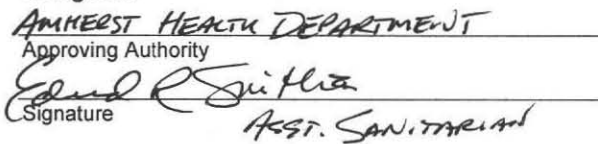 AMHERST HEALTH DEPARTMENT
Approving Authority
Signature
ASST. SANITARIAN